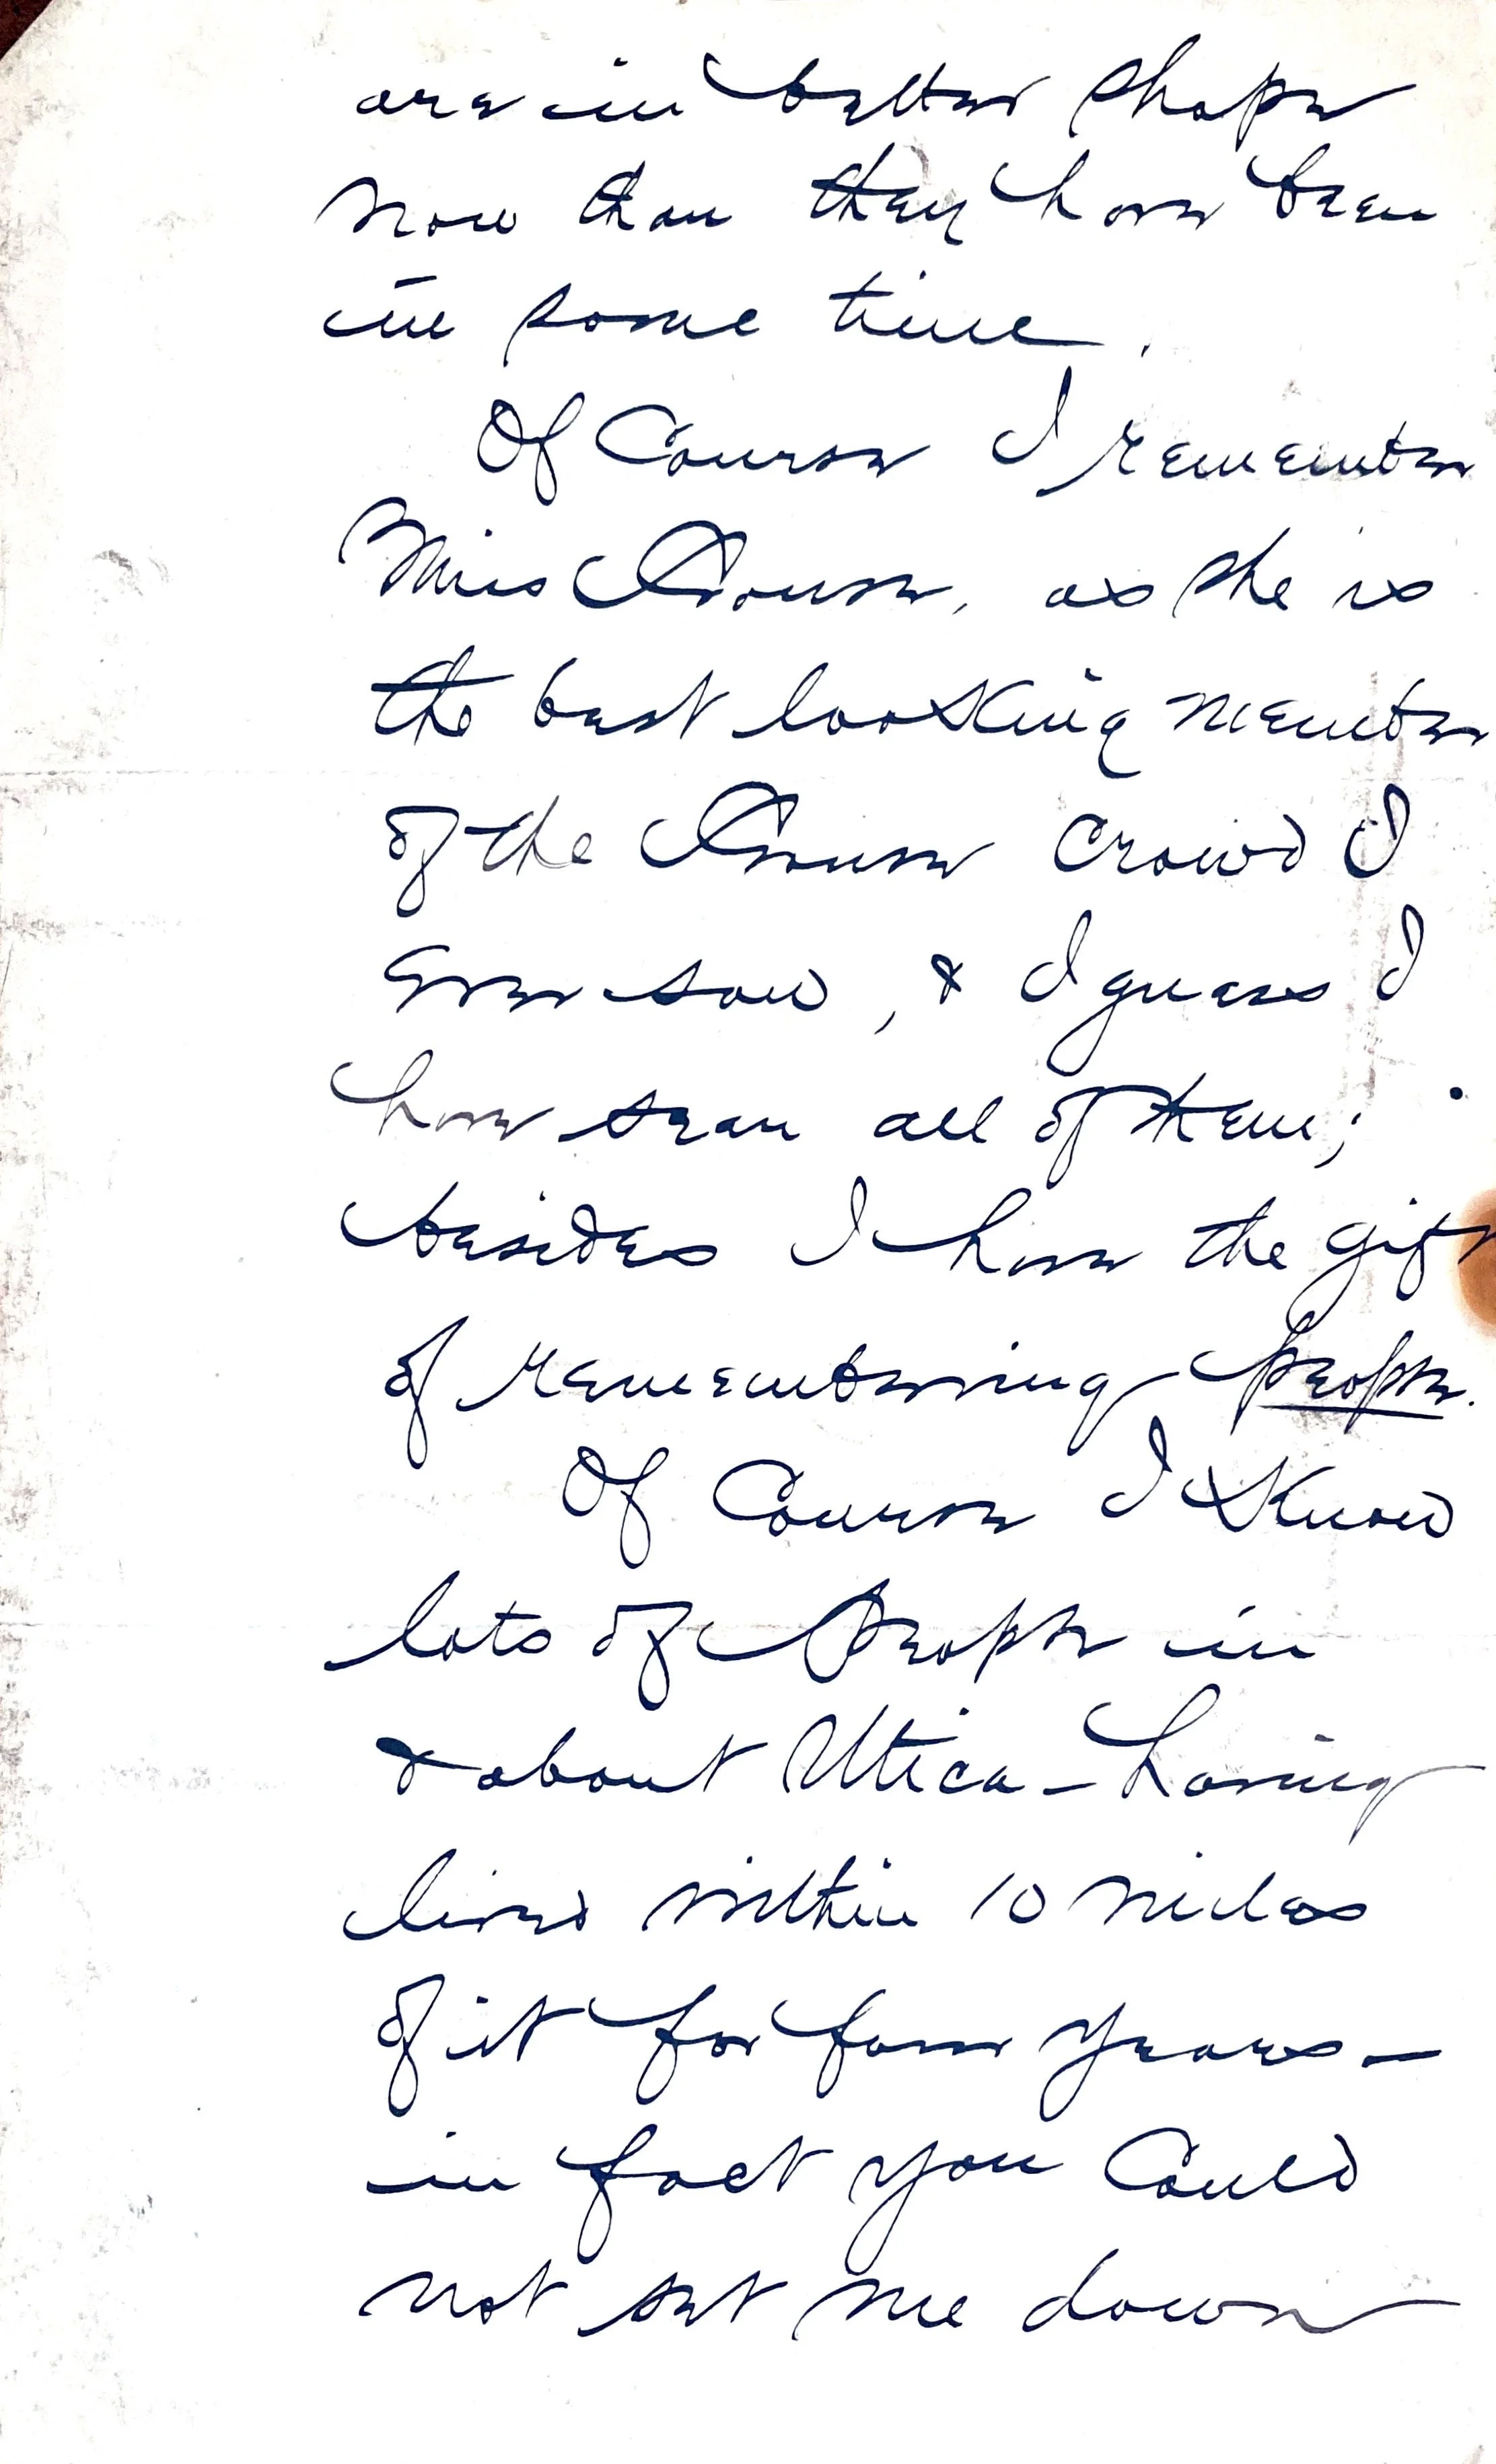 are in better shape
now than they have been
in some time.
Of Course I remember
Miss Crouse, as she is
the best looking member
of the Crouse crowd I
Ever saw, & I guess I
have seen all of them;
besides I have the gift
of remembering people.
Of Course I Know
lots of People in
& about Utica - having
lived within 10 miles
of it for four years -
in fact you Could
not set me down